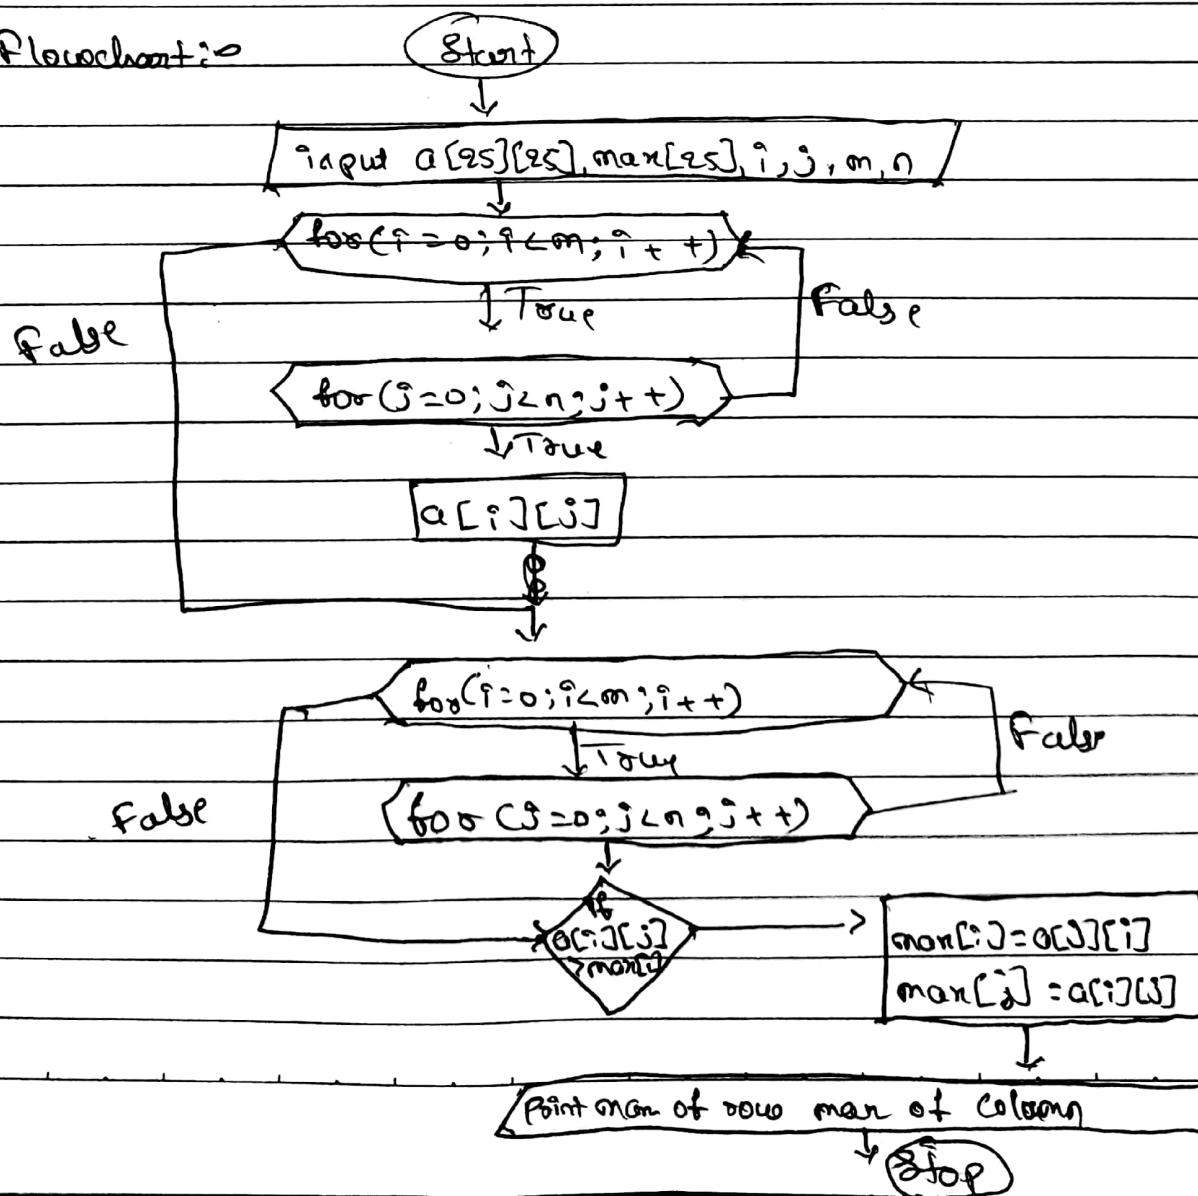 Flowchart:-
Start
input a[25][25], max[25], i, j, m, n
for(i=0; i<m; i++)
True
False
False
for(j=0; j<n; j++)
True
a[i][j]
for(i=0; i<m; i++)
True
False
False
for(j=0; j<n; j++)
if
a[i][j]
>max[i]
max[i]=a[j][i]
max[j]=a[i][j]
Print max of row max of column
Stop